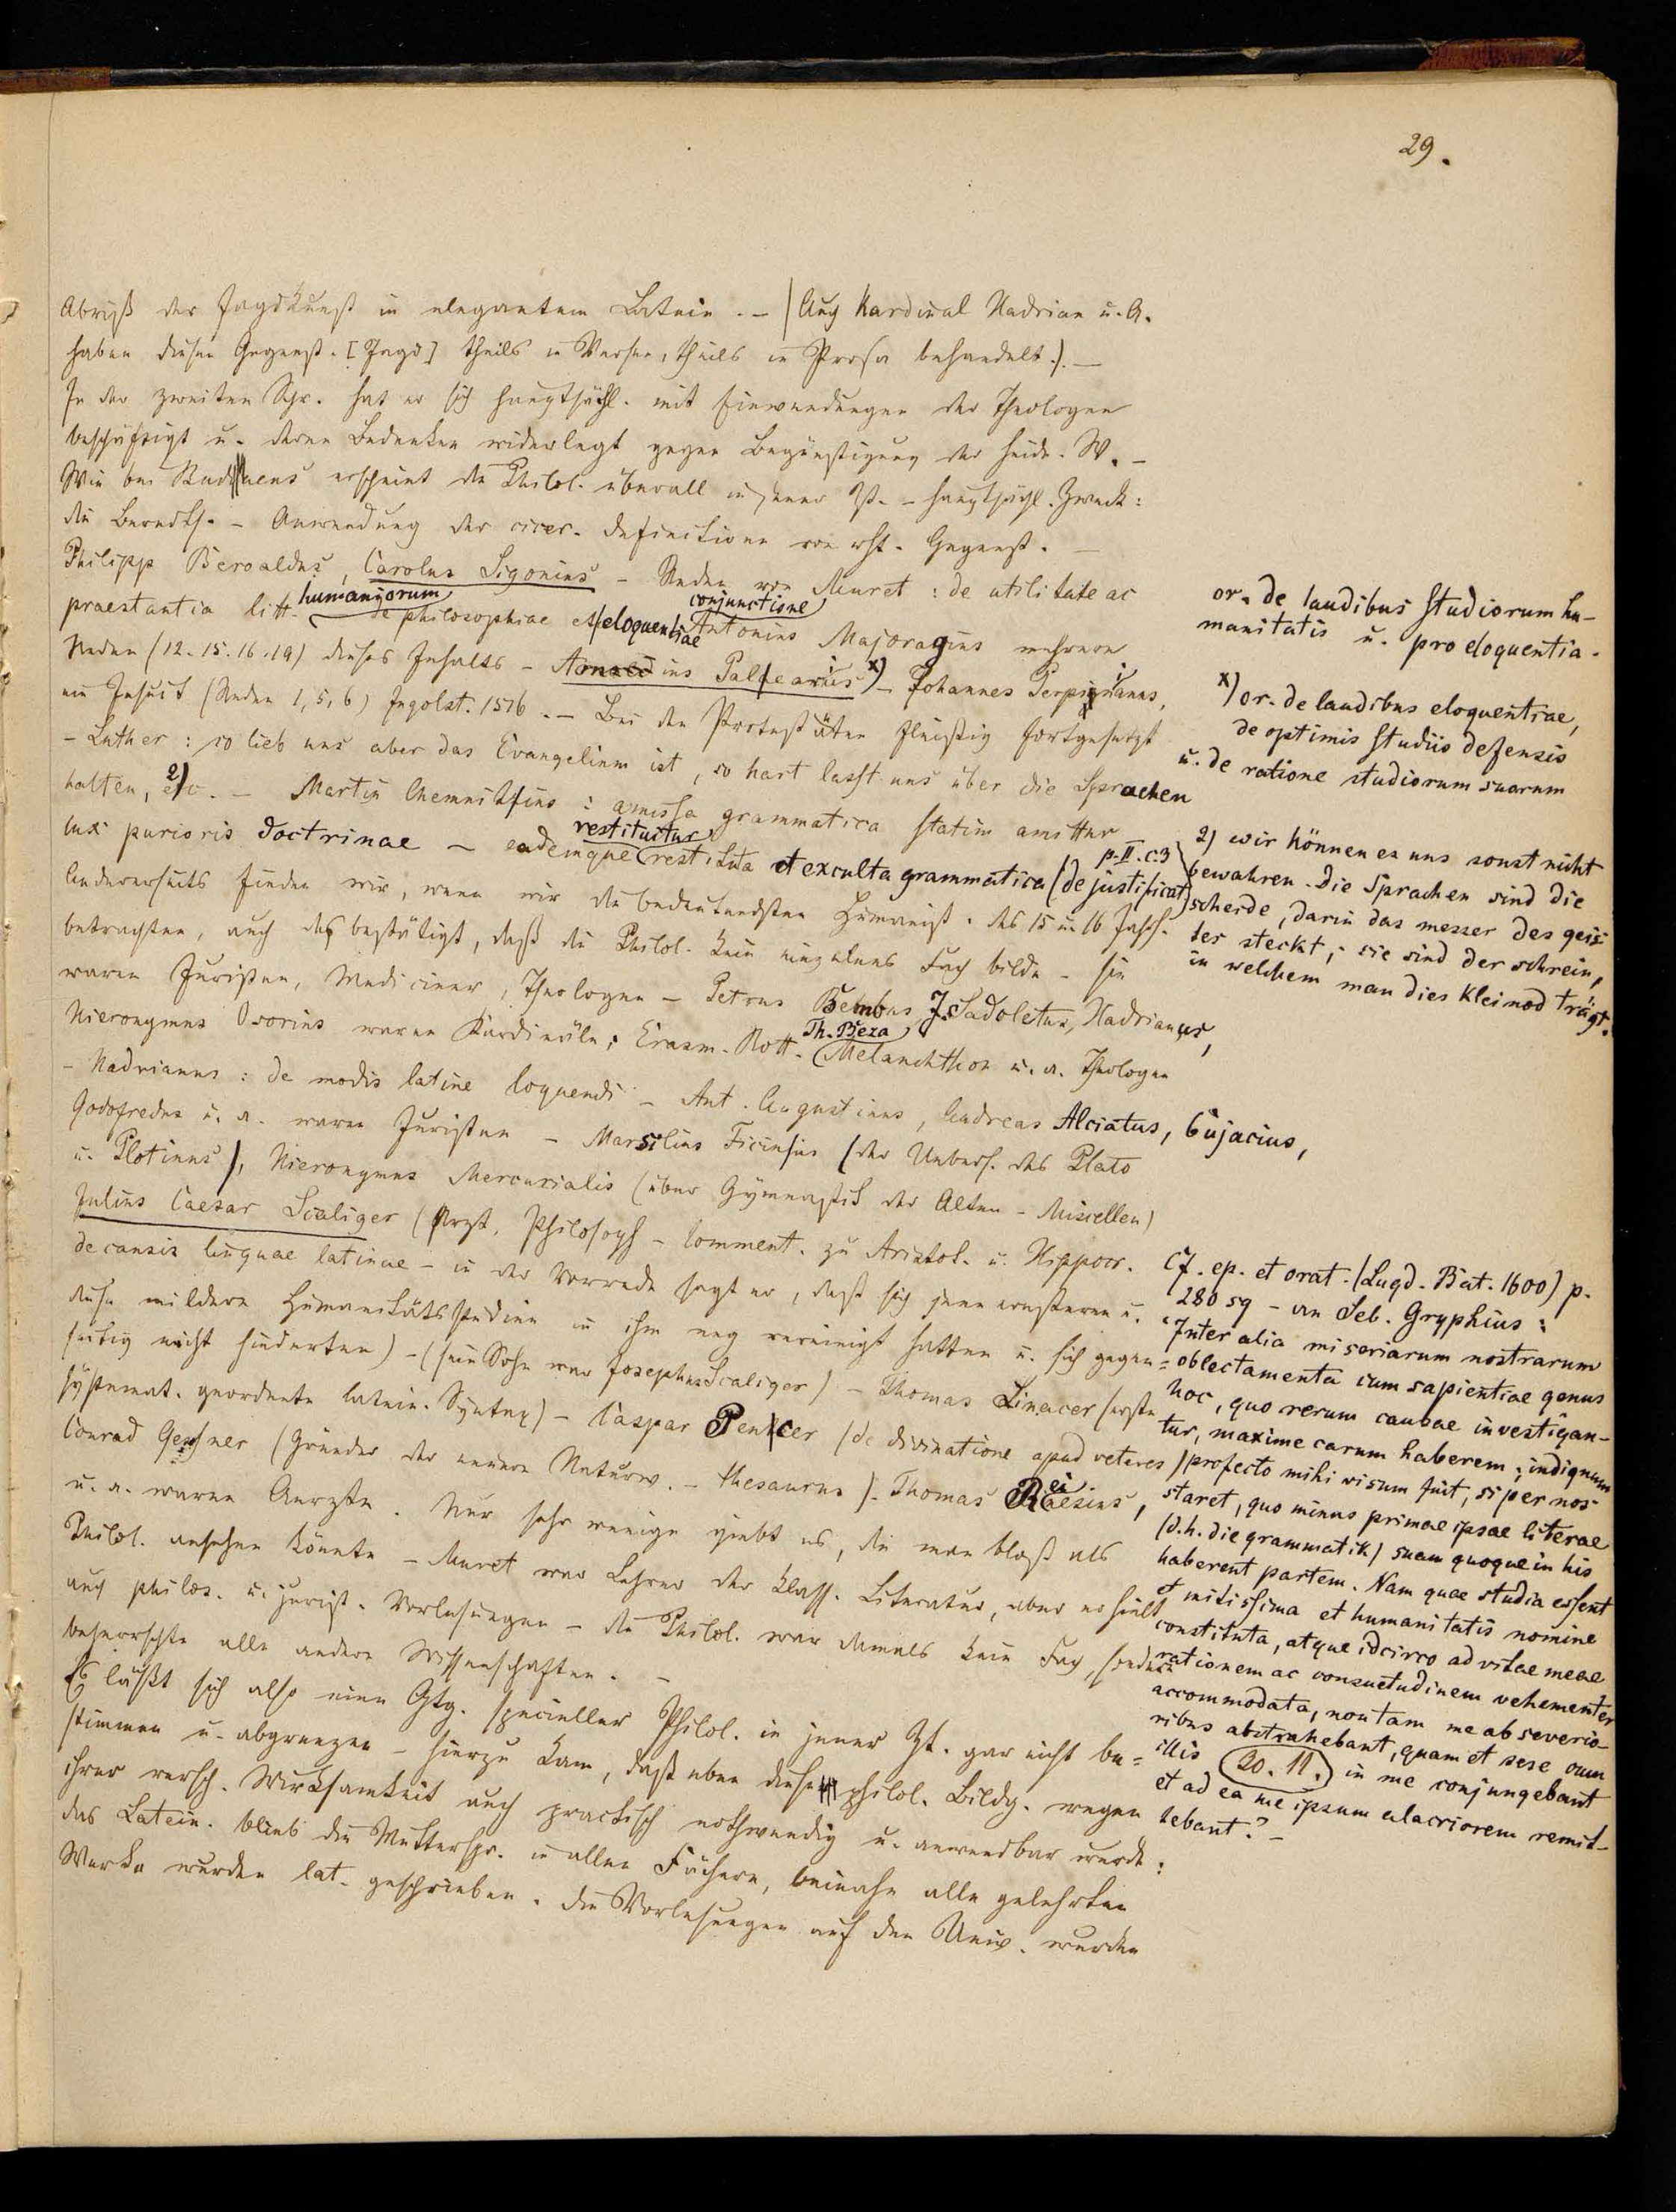 29.
Abriß der Jagdkunst in elegantem Latein. – (Auch Kardinal Hadrian u. A.
haben diesen Gegenst. [Jagd] theils in Versen, theils in Prosa behandelt.). –
In der zweiten Schr. hat er sich hauptsächl. mit Einwendungen der Theologen
beschäftigt u. deren Bedenken widerlegt gegen Begünstigung der heidn. W. –
Wie bei Budaeus erscheint die Philol. überall in jener Zt. – hauptsächl. Zweck:
die Beredts. – Anwendung der cicer. Definitionen von rht. Gegenst. –
Philipp Beroaldus, Carolus Sigonius – Reden von Muret: de utilitate ac
praestantia litt. humaniorum de philosophiae et eloquentiae conjunctione Antonius Majoragius mehrere
Reden (12. 15. 16. 19) dieses Inhalts – Aonius Palearius x) – Johannes Perpinianus,
ein Jesuit (Reden 1, 5, 6) Ingolst. 1576. – Bei den Protestäten fleißig fortgesetzt
– Luther: so lieb uns aber das Evangelium ist, so hart lasst uns über die Sprachen
halten, 2) etc. – Martin Chemnitzius: amissa grammatica statim amittur
lux purioris doctrinae – eademque restituitur restituta et exculta grammatica (de justificat. p. II. c. 3)
Andererseits finden wir, wenn wir die bedeutendsten Humanist. des 15 u. 16 Jahrh.
betrachten, auch das bestätigt, daß die Philol. kein einzelnes Fach bilde – sie
waren Juristen, Mediciner, Theologen – Petrus Bembus J. Sadoletus, Hadrianus,
Hieronymus Osorius waren Kardinäle; Erasm. Rott. Th. Beza Melanchthon u. a. Theologen
– Hadrianus: de modis latine loquendi – Ant. Augustinus, Andreas Alciatus, Cujacius,
Godofredus u. a. waren Juristen – Marsilius Ficinus (der Uebers. des Plato
u. Plotinus), Hieronymus Mercurialis (über Gymnastik der Alten – Miscellen)
Julius Caesar Scaliger (Arzt, Philosoph – Comment. zu Aristot. u. Hippocr.
de causis linguae latinae – in der Vorrede sagt er, daß sich jene ernsteren u.
diese milderen Humanitätsstudien in ihm eng vereinigt hatten u. sich gegen=
seitig nicht hinderten) – (sein Sohn war Josephus Scaliger) – Thomas Linacer (erste
systemat. geordnete latein. Syntax) – Caspar Peucer (de divinatione apud veteres)
Conrad Gesner (Gründer der neuern Naturw. – thesaurus). Thomas Reinesius,
u. a. waren Aerzte. Nur sehr wenige giebt es, die man bloß als
Philol. ansehen könnte – Muret war Lehrer der klass. Literatur, aber er hielt
auch philos. u. jurist. Vorlesungen – die Philol. war damals kein Fach, sondern
beherrschte alle andern Wissenschaften. –
Es läßt sich also eine Gtg. specieller Philol. in jener Zt. gar nicht be=
stimmen u. abgrenzen – hierzu kam, daß eben diese philol. Bildg. wegen
ihrer versch. Wirksamkeit auch practisch nothwendig u. anwendbar wurde:
das Latein. blieb die Muttersp. in allen Fächern, beinahe alle gelehrten
Werke wurden lat. geschrieben. die Vorlesungen auf den Univ. wurden
or. de laudibus studiorum hu-
manitatis u. pro eloquentia.
x) or. de laudibus eloquentiae,
de optimis studiis defensis
u. de ratione studiorum suarum
2) wir können es uns sonst nicht
bewahren. Die Sprachen sind die
scheide, darin das messer des geis-
tes steckt; sie sind der schrein,
in welchem man dies Kleinod trägt.
Cf. ep. et orat. (Lugd. Bat. 1600) p.
280 sq – an Seb. Gryphius:
"Inter alia miseriarum nostrarum
oblectamenta cum sapientiae genus
hoc, quo rerum caubae investigan-
tur, maxime carum haberem; indignum
profecto mihi visum fuit, si per nos
staret, quo minus primae ipsae literae
(d. h. die grammatik) suam quoque in his
haberent partem. Nam quae studia essent
mitissima et humanitatis nomine
constituta, atque idcirco ad vitae meae
rationem ac consuetudinem vehementer
accommodata, non tam me ab severio-
ribus abstrahebant, quam et sese cum
illis (20. 11.) in me conjungebant
et ad ea me ipsum alacriorem remit-
tebant." –